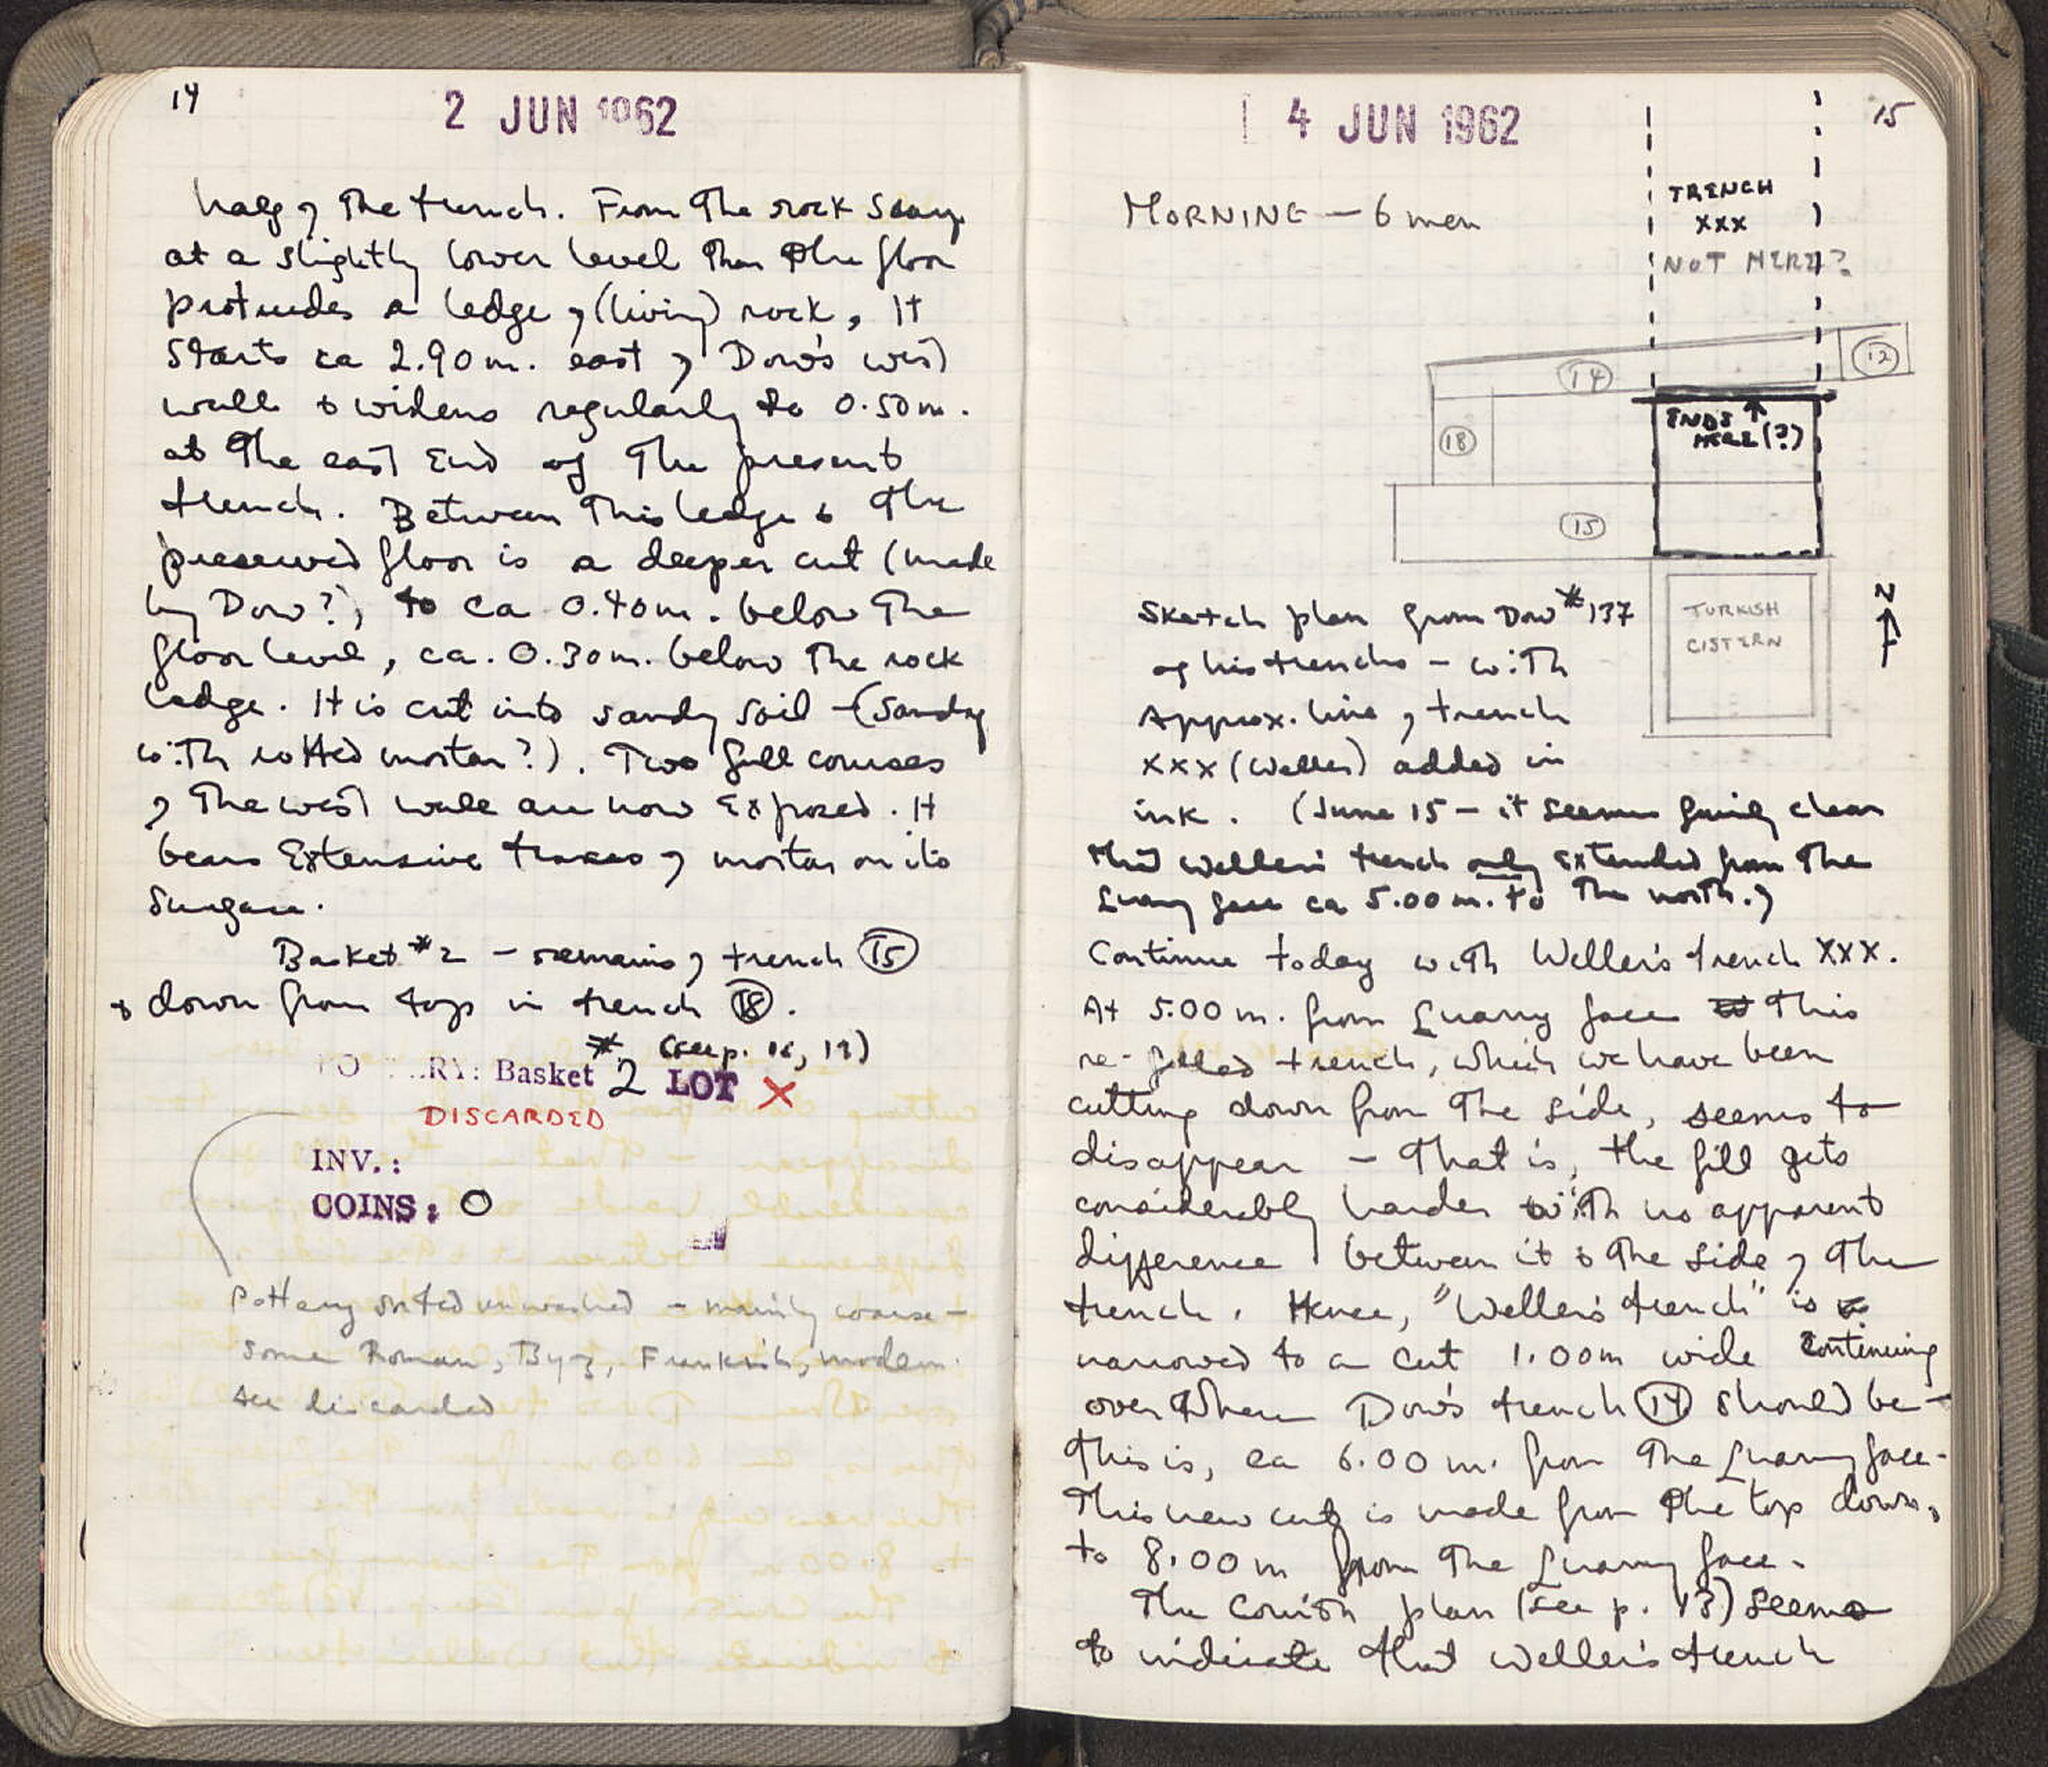 14
2 JUN 1962
half of the trench. From the rock scarp
at a slightly lower level than the floor
protrudes a ledge of (living) rock, It
starts ca 2.90 m. east of Dow's west
wall & widens regularly to 0.50 m.
at the east end of the present
trench. Between this ledge & the
preserved floor is a deeper cut (made
by Dow?), to ca 0.40 m. below the
floor level, ca. 0.30 m. below the rock
ledge. It is cut into sandy soil – (sandy
with rotted mortar?). Two full courses
of the west wall are now exposed. It
bears extensive traces of mortar on its
surface.
Basket #2 – remains of trench (15)
& down from top in trench (18).
(see p. 16, 19)
RY: Basket # 2 LOT X
DISCARDED
INV.:
COINS: 0
Pottery sorted unwashed – mainly coarse –
some Roman, Byz, Frankish, modern.
All discarded
15
4 JUN 1962
MORNING – 6 men
TRENCH
XXX
NOT HERE?
(12)
(14)
ENDS
HERE (?)
(18)
(15)
TURKISH
CISTERN
N
Sketch plan from Dow #137
of his trenches – with
Approx. line of trench
XXX (Weller) added in
ink. (June 15 – it seems fairly clear
that Weller's trench only extended from the
Quarry face ca 5.00 m. to the north.)
Continue today with Weller's trench XXX.
At 5.00 m. from Quarry face this
re-filled trench, which we have been
cutting down from the side, seems to
disappear – that is, the fill gets
considerably harder with no apparent
difference between it & the side of the
trench. Hence, "Weller's trench" is
narrowed to a cut 1.00 m wide continuing
over where Dow's trench (14) should be –
this is, ca 6.00 m. from the Quarry face.
This new cut is made from the top down,
to 8.00 m from the Quarry face.
The Cornish plan (see p. 13) seems
to indicate that Weller's trench